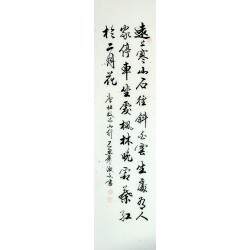 遠上寒山石徑斜白雲生處有人
家停車坐愛楓林晚霜葉紅
於二月花
杜牧山行